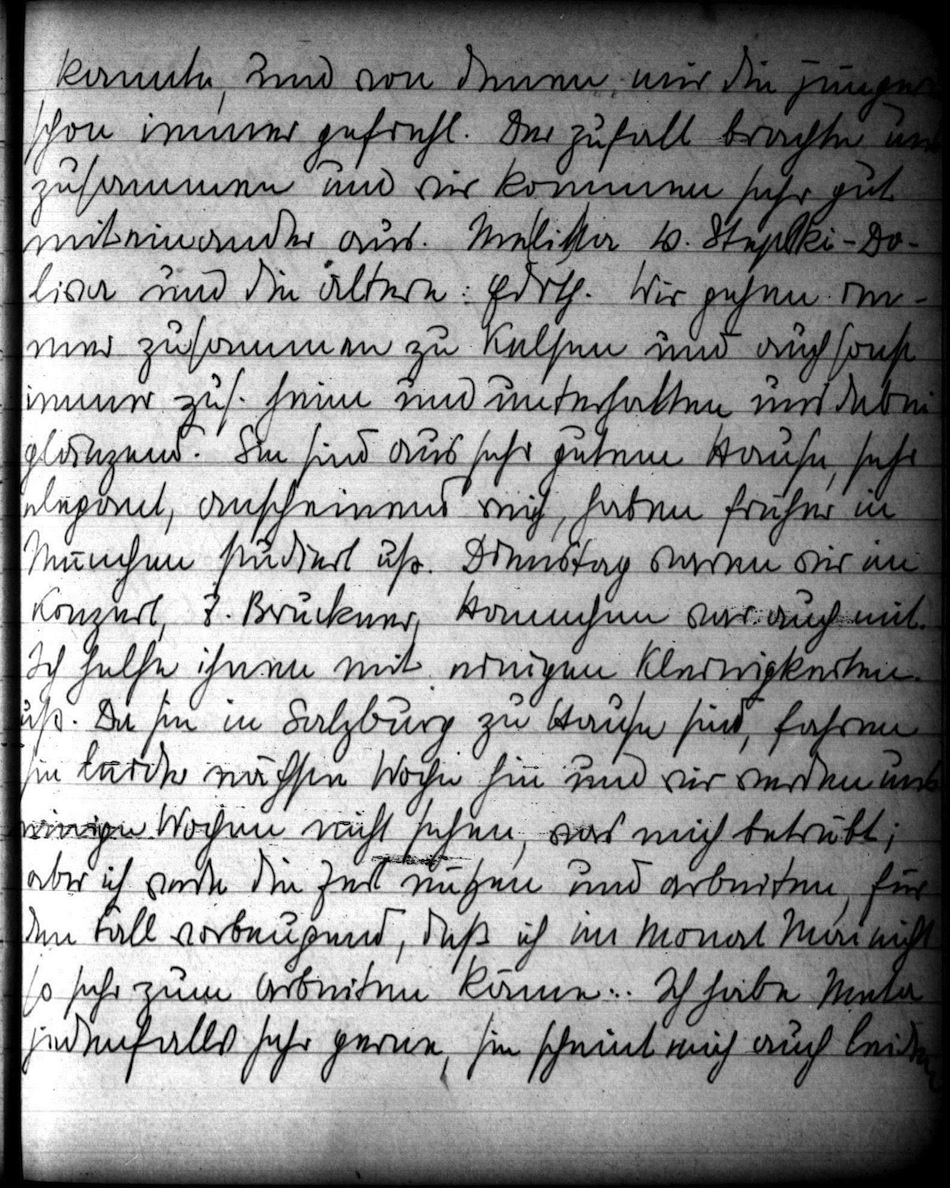 kannte, und von denen mir die jüngere
schon immer gefiehl. Der Zufall brachte uns
zusammen und wir kommen sehr gut
miteinander aus. Melitta v. Stepski-Do-
liwa und die ältere: Edith. Wir gehen im-
mer zusammen zu Kelsen und auch sonst
immer zus. heim und unterhalten uns dabei
glänzend. Sie sind aus sehr gutem Hause, sehr
elegant, anscheinend reich, haben früher in
München studiert usw. Dienstag waren wir im
Konzert, 7. Bruckner, Hannchen war auch mit.
Ich helfe ihnen mit einigen Kleinigkeiten
usw. Da sie in Salzburg zu Hause sind, fahren
sie leider nächste Woche hin und wir werden uns
einige Wochen nicht sehen, was mich betrübt;
aber ich werde die Zeit nützen und arbeiten, für
den Fall vorbeugend, daß ich im Monat Mai nicht
so sehr zum arbeiten käme... Ich habe Mela
jedenfalls sehr gerne, sie scheint mich auch leiden